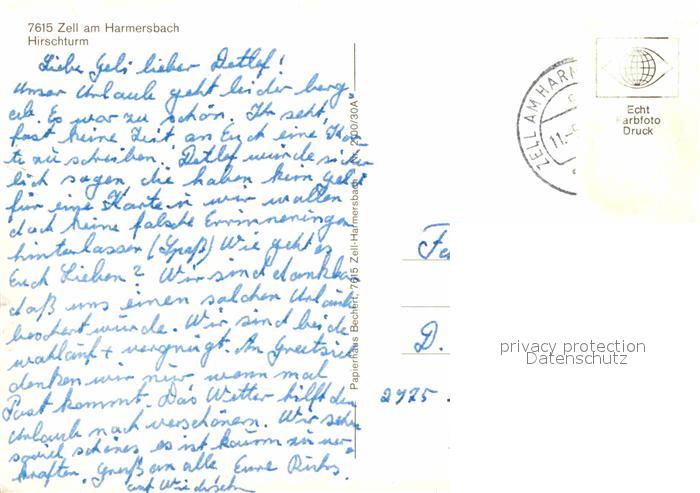 7615 Zell am Harmersbach
Hirschturm
Liebe Geli lieber Detlef!
Unser Urlaub geht leider berg-
ab. Es war zu schön. Ihr seht,
fast keine Zeit, an Euch eine Kar-
te zu schreiben. Detlef würde sicher
lich sagen die haben kein Geld
für eine Karte wir wollen
doch keine falsche Errinneringen
hinterlassen (Spaß) Wie geht es
Euch Lieben? Wir sind dankbar
daß uns einen solchen Urlaub
beschert wurde. Wir sind beide
wohlauf + vergnügt. An Greetsiel
denken wir nur wenn mal
Post kommt. Das Wetter hilft den
Urlaub noch verschönern. Wir sehn
soviel schönes es ist kaum zu ver-
kraften. Grüß an alle Eure
auf Wiedersehn
Papierhaus Bechert, 7615 Zell-Harmersbach
Nr. 2100/30A
ZELL AM HARM
11.
Echt
Farbfoto
Druck
Fa
D.
2975
privacy protection
Datenschutz